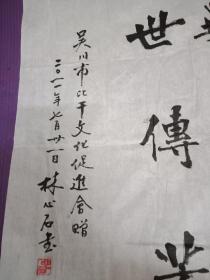 世傳
吴川市比干文化促進會赠
二〇一一年七月廿一日 林心石書